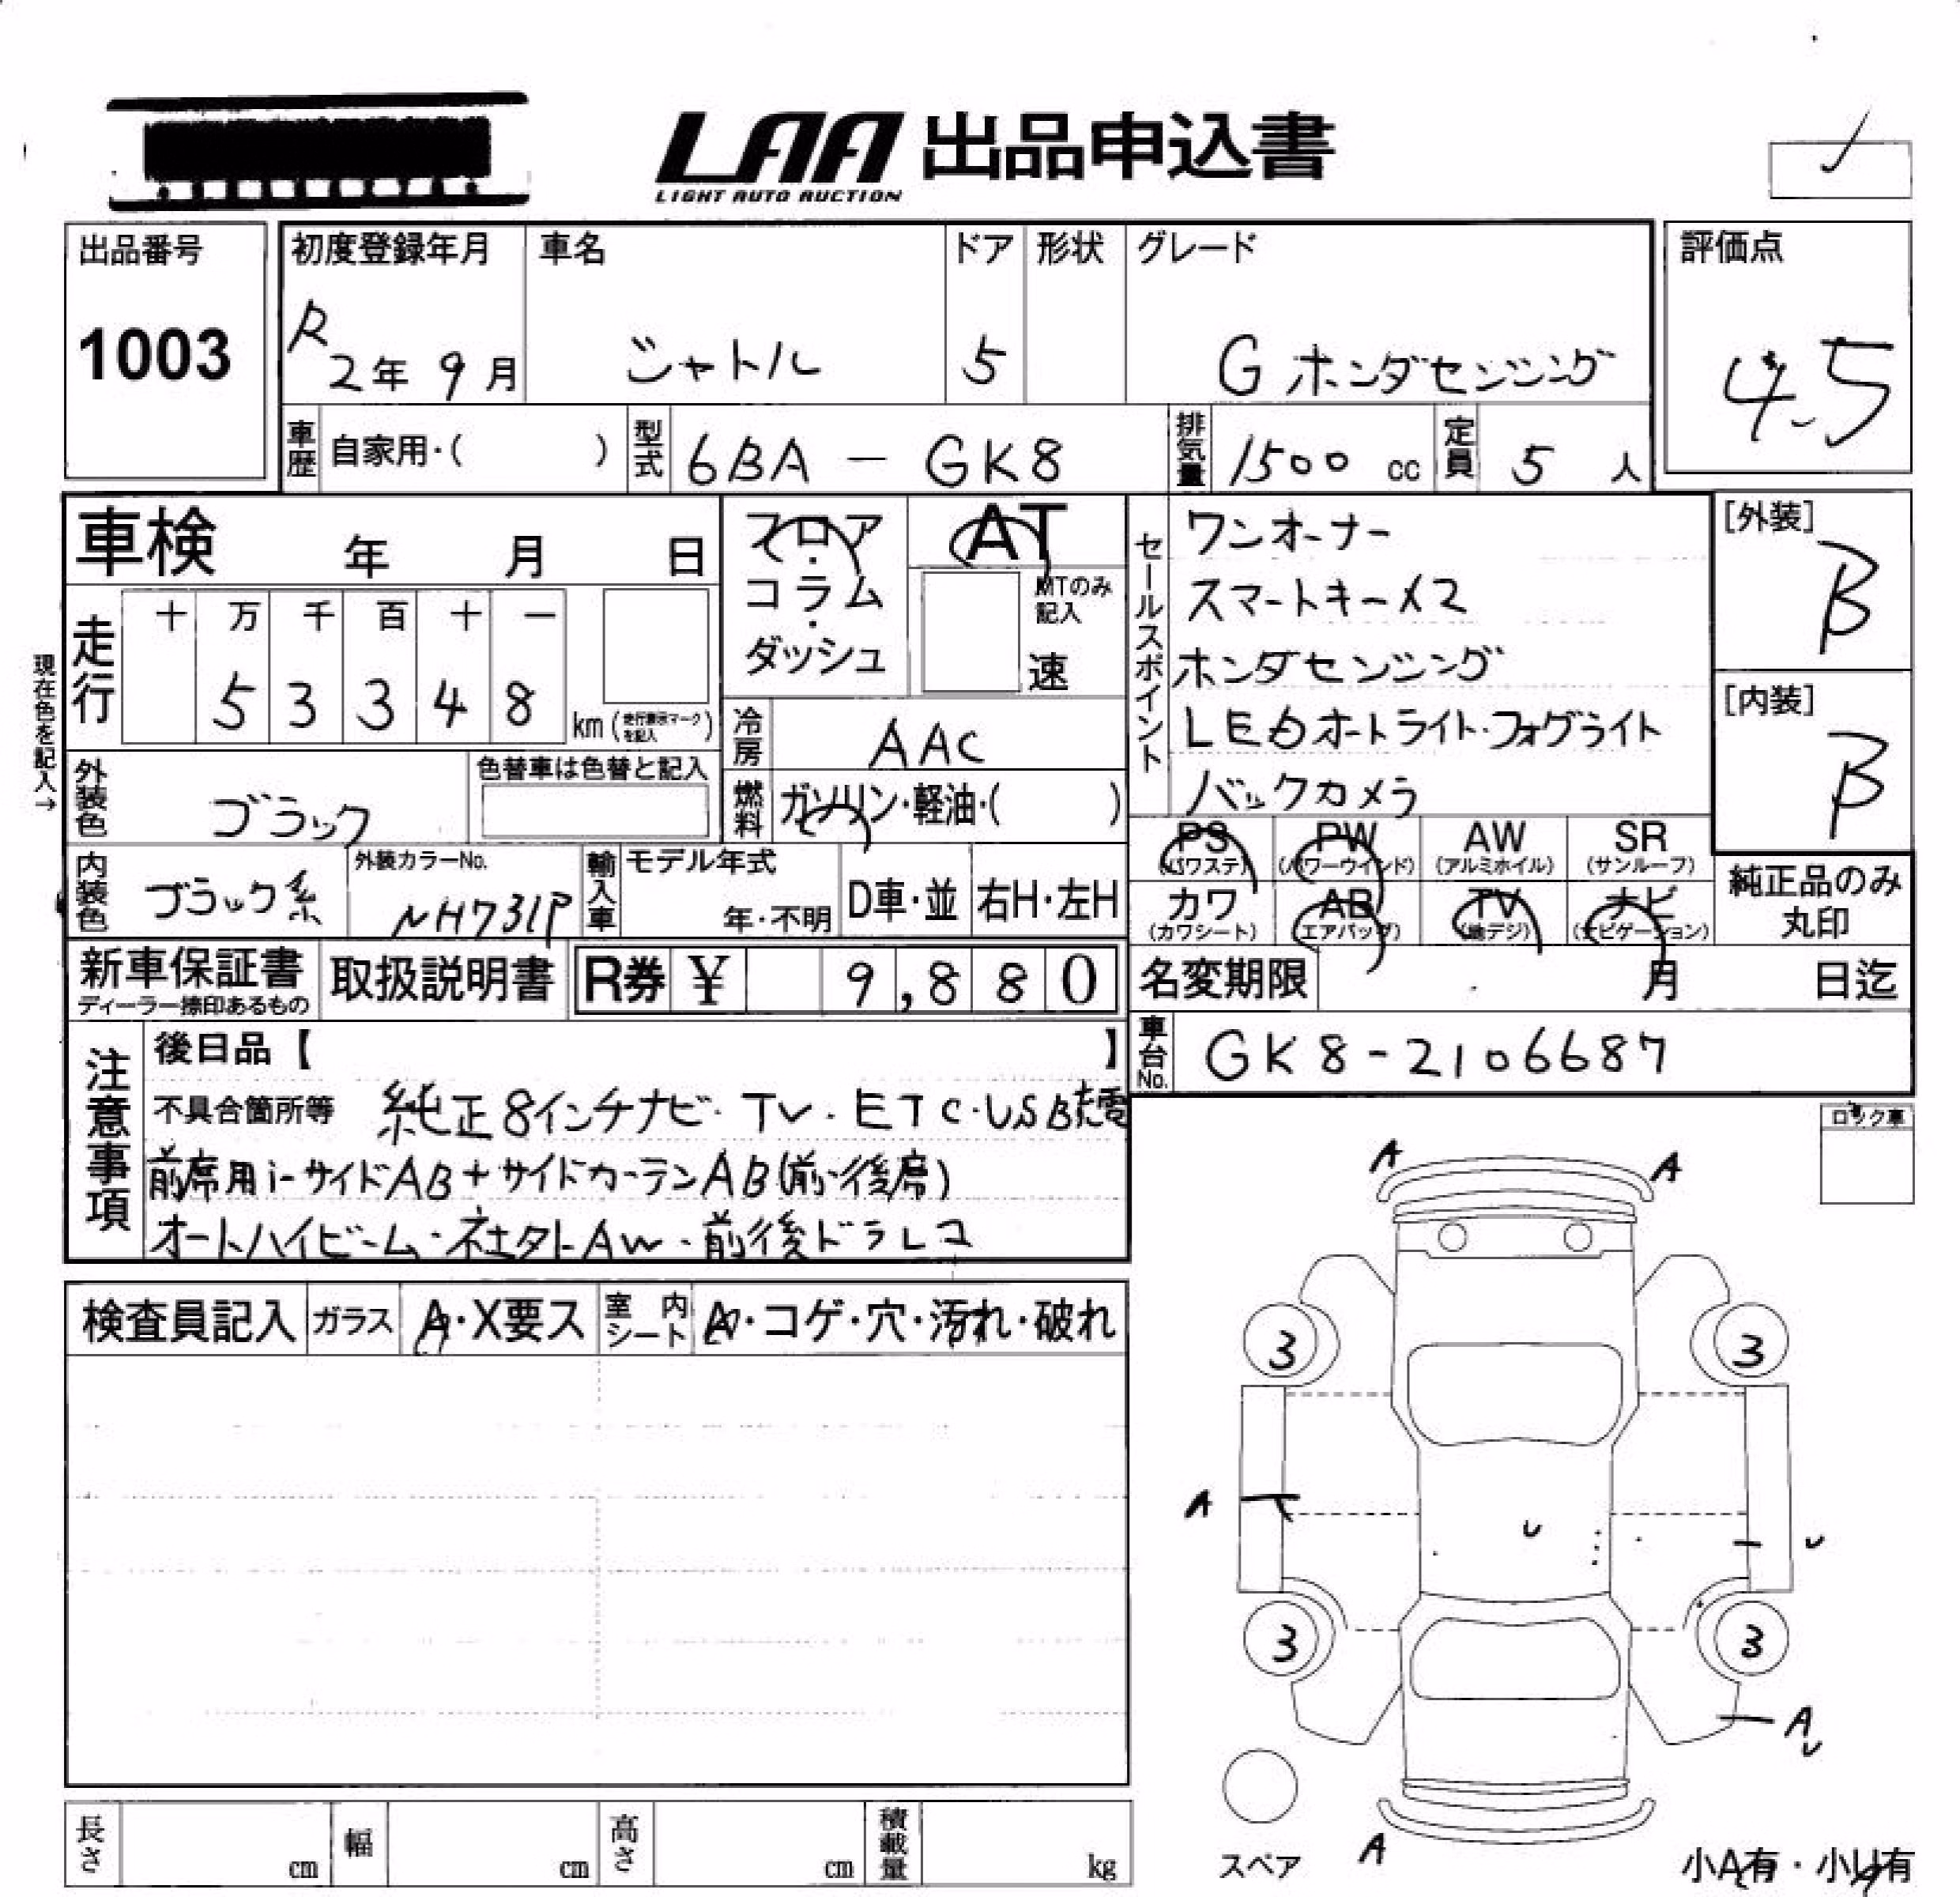 LAA 出品申込書
LIGHT AUTO AUCTION
出品番号
1003
初度登録年月
R2年 9月
車名
シャトル
ドア
5
形状
グレード
G ホンダセンシング
評価点
4.5
車歴 自家用・( )
型式 6BA - GK8
排気量 1500 cc
定員 5 人
車検 年 月 日
フロア・コラム・ダッシュ
AT
MTのみ記入
速
セールスポイント
ワンオーナー
スマートキー×2
ホンダセンシング
LEDオートライト・フォグライト
バックカメラ
[外装]
B
[内装]
B
現在色を記入→
走行
十 万 千 百 十 一
5 3 3 4 8
km (走行表示マークを記入)
冷房 AAC
燃料 ガソリン・軽油・( )
外装色 ブラック
色替車は色替と記入
PS (パワステ) PW (パワーウインド) AW (アルミホイル) SR (サンルーフ)
カワ (カワシート) AB (エアバッグ) TV (地デジ) ナビ (ナビゲーション)
純正品のみ丸印
内装色 ブラック系
外装カラーNo.
NH731P
輸入車 モデル年式
年・不明
D車・並 右H・左H
新車保証書
ディーラー捺印あるもの
取扱説明書
R券 ¥ 9,880
名変期限 月 日迄
車台No. GK8-2106687
注意事項
後日品【 】
不具合箇所等 純正8インチナビ・TV・ETC・USB
前席用i-サイドAB+サイドカーテンAB(前・後席)
オートハイビーム・社外AW・前後ドラレコ
検査員記入 ガラス A・X要ス 室内シート A・コゲ・穴・汚れ・破れ
ロック車
A A
3 3
A
U
U
3 3
A
U
A
スペア
小A有・小U有
長さ cm 幅 cm 高さ cm 積載量 kg